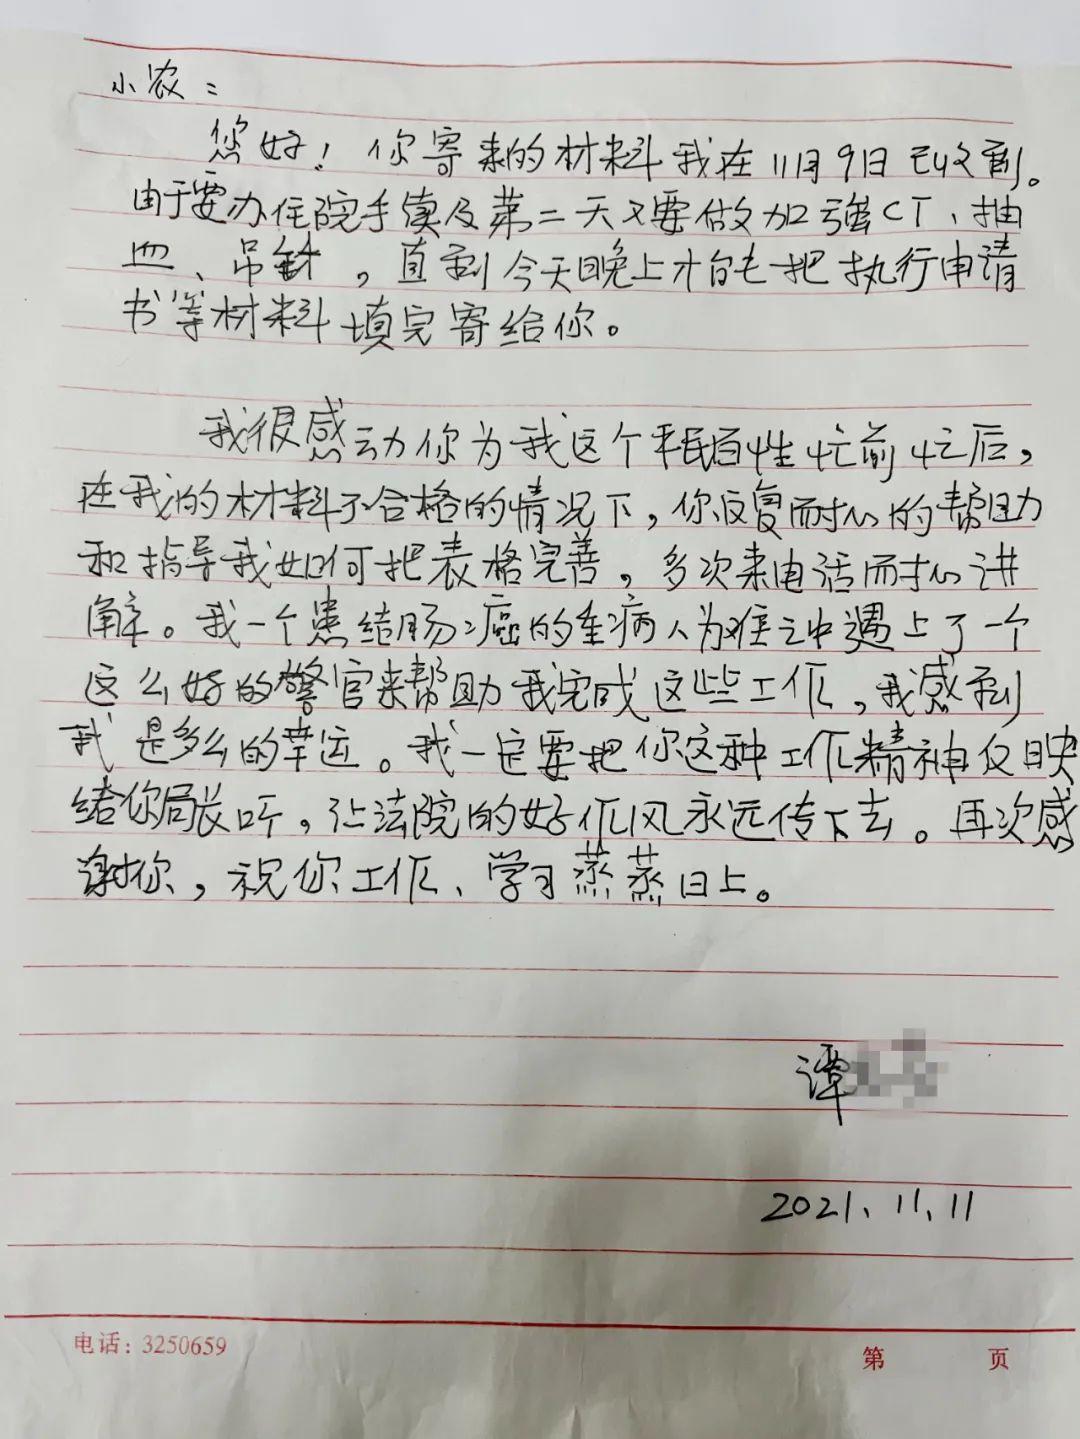 小农：
您好！你寄来的材料我在11月9日已收到。
由于要办住院手续及第二天又要做加强CT、抽
血、吊针，直到今天晚上才能把执行申请
书等材料填完寄给你。
我很感动你为我这个平民百性忙前忙后，
在我的材料不合格的情况下，你反复耐心的帮助
和指导我如何把表格完善，多次来电话耐心讲
解。我一个患结肠癌的重病人为难之中遇上了一个
这么好的警官来帮助我完成这些工作，我感到
我是多么的幸运。我一定要把你这种工作精神反映
给你局长听，让法院的好作风永远传下去。再次感
谢你，祝你工作、学习蒸蒸日上。
谭
2021、11、11
电话：3250659
第 页